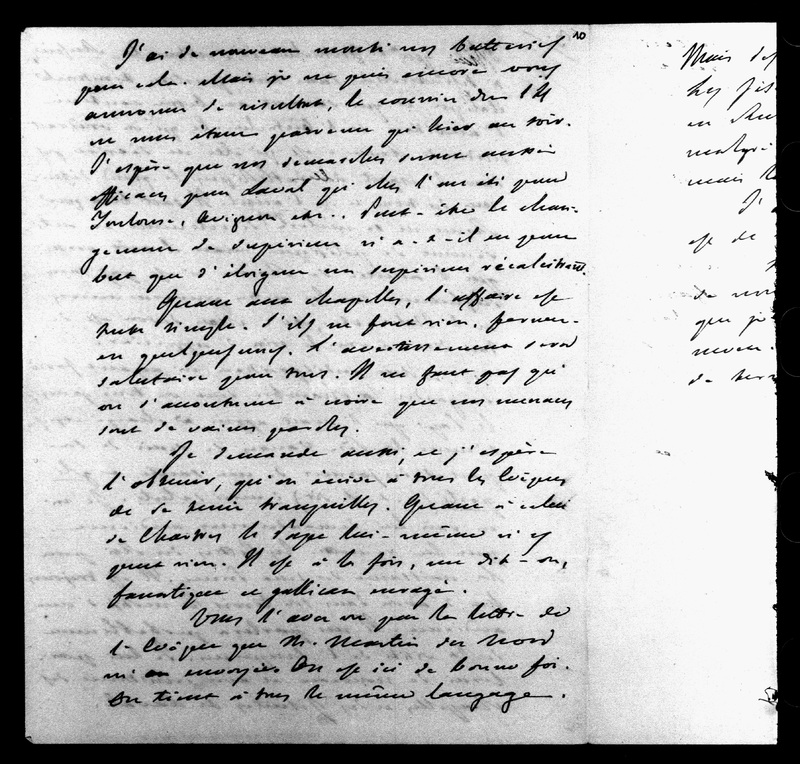 10
J'ai de nouveau monté mes batteries
pour cela. Mais je ne puis encore vous
annoncer de résultat, le courrier du 14
ne nous étant parvenu qu'hier au soir.
J'espère que nos démarches seront aussi
efficaces pour Laval qu'elles l'ont été pour
Toulouse, Avignon etc.. Peut-être le chan-
gement de supérieur n'a-t-il eu pour
but que d'éloigner un supérieur récalcitrant.
Quant aux chapelles, l'affaire est
toute simple. S'ils ne font rien, fermez-
en quelques unes. L'avertissement sera
salutaire pour tous. Il ne faut pas qu'
on s'accoutume à croire que nos menaces
sont de vaines paroles.
Je demande aussi, et j'espère
l'obtenir, qu'on écrive à tous les Evêques
de se tenir tranquilles. Quant à celui
de Chartres le Pape lui-même n'y
peut rien. Il est à la fois, me dit-on,
fanatique et gallican enragé.
Vous l'avez vu par la lettre de
l'Evêque que M. Martin du Nord
m'a envoyée. On est ici de bonne foi.
On tient à tous le même langage.
Mais des
les Jés
en
malgré
mais l
J'a
est de
de
que je